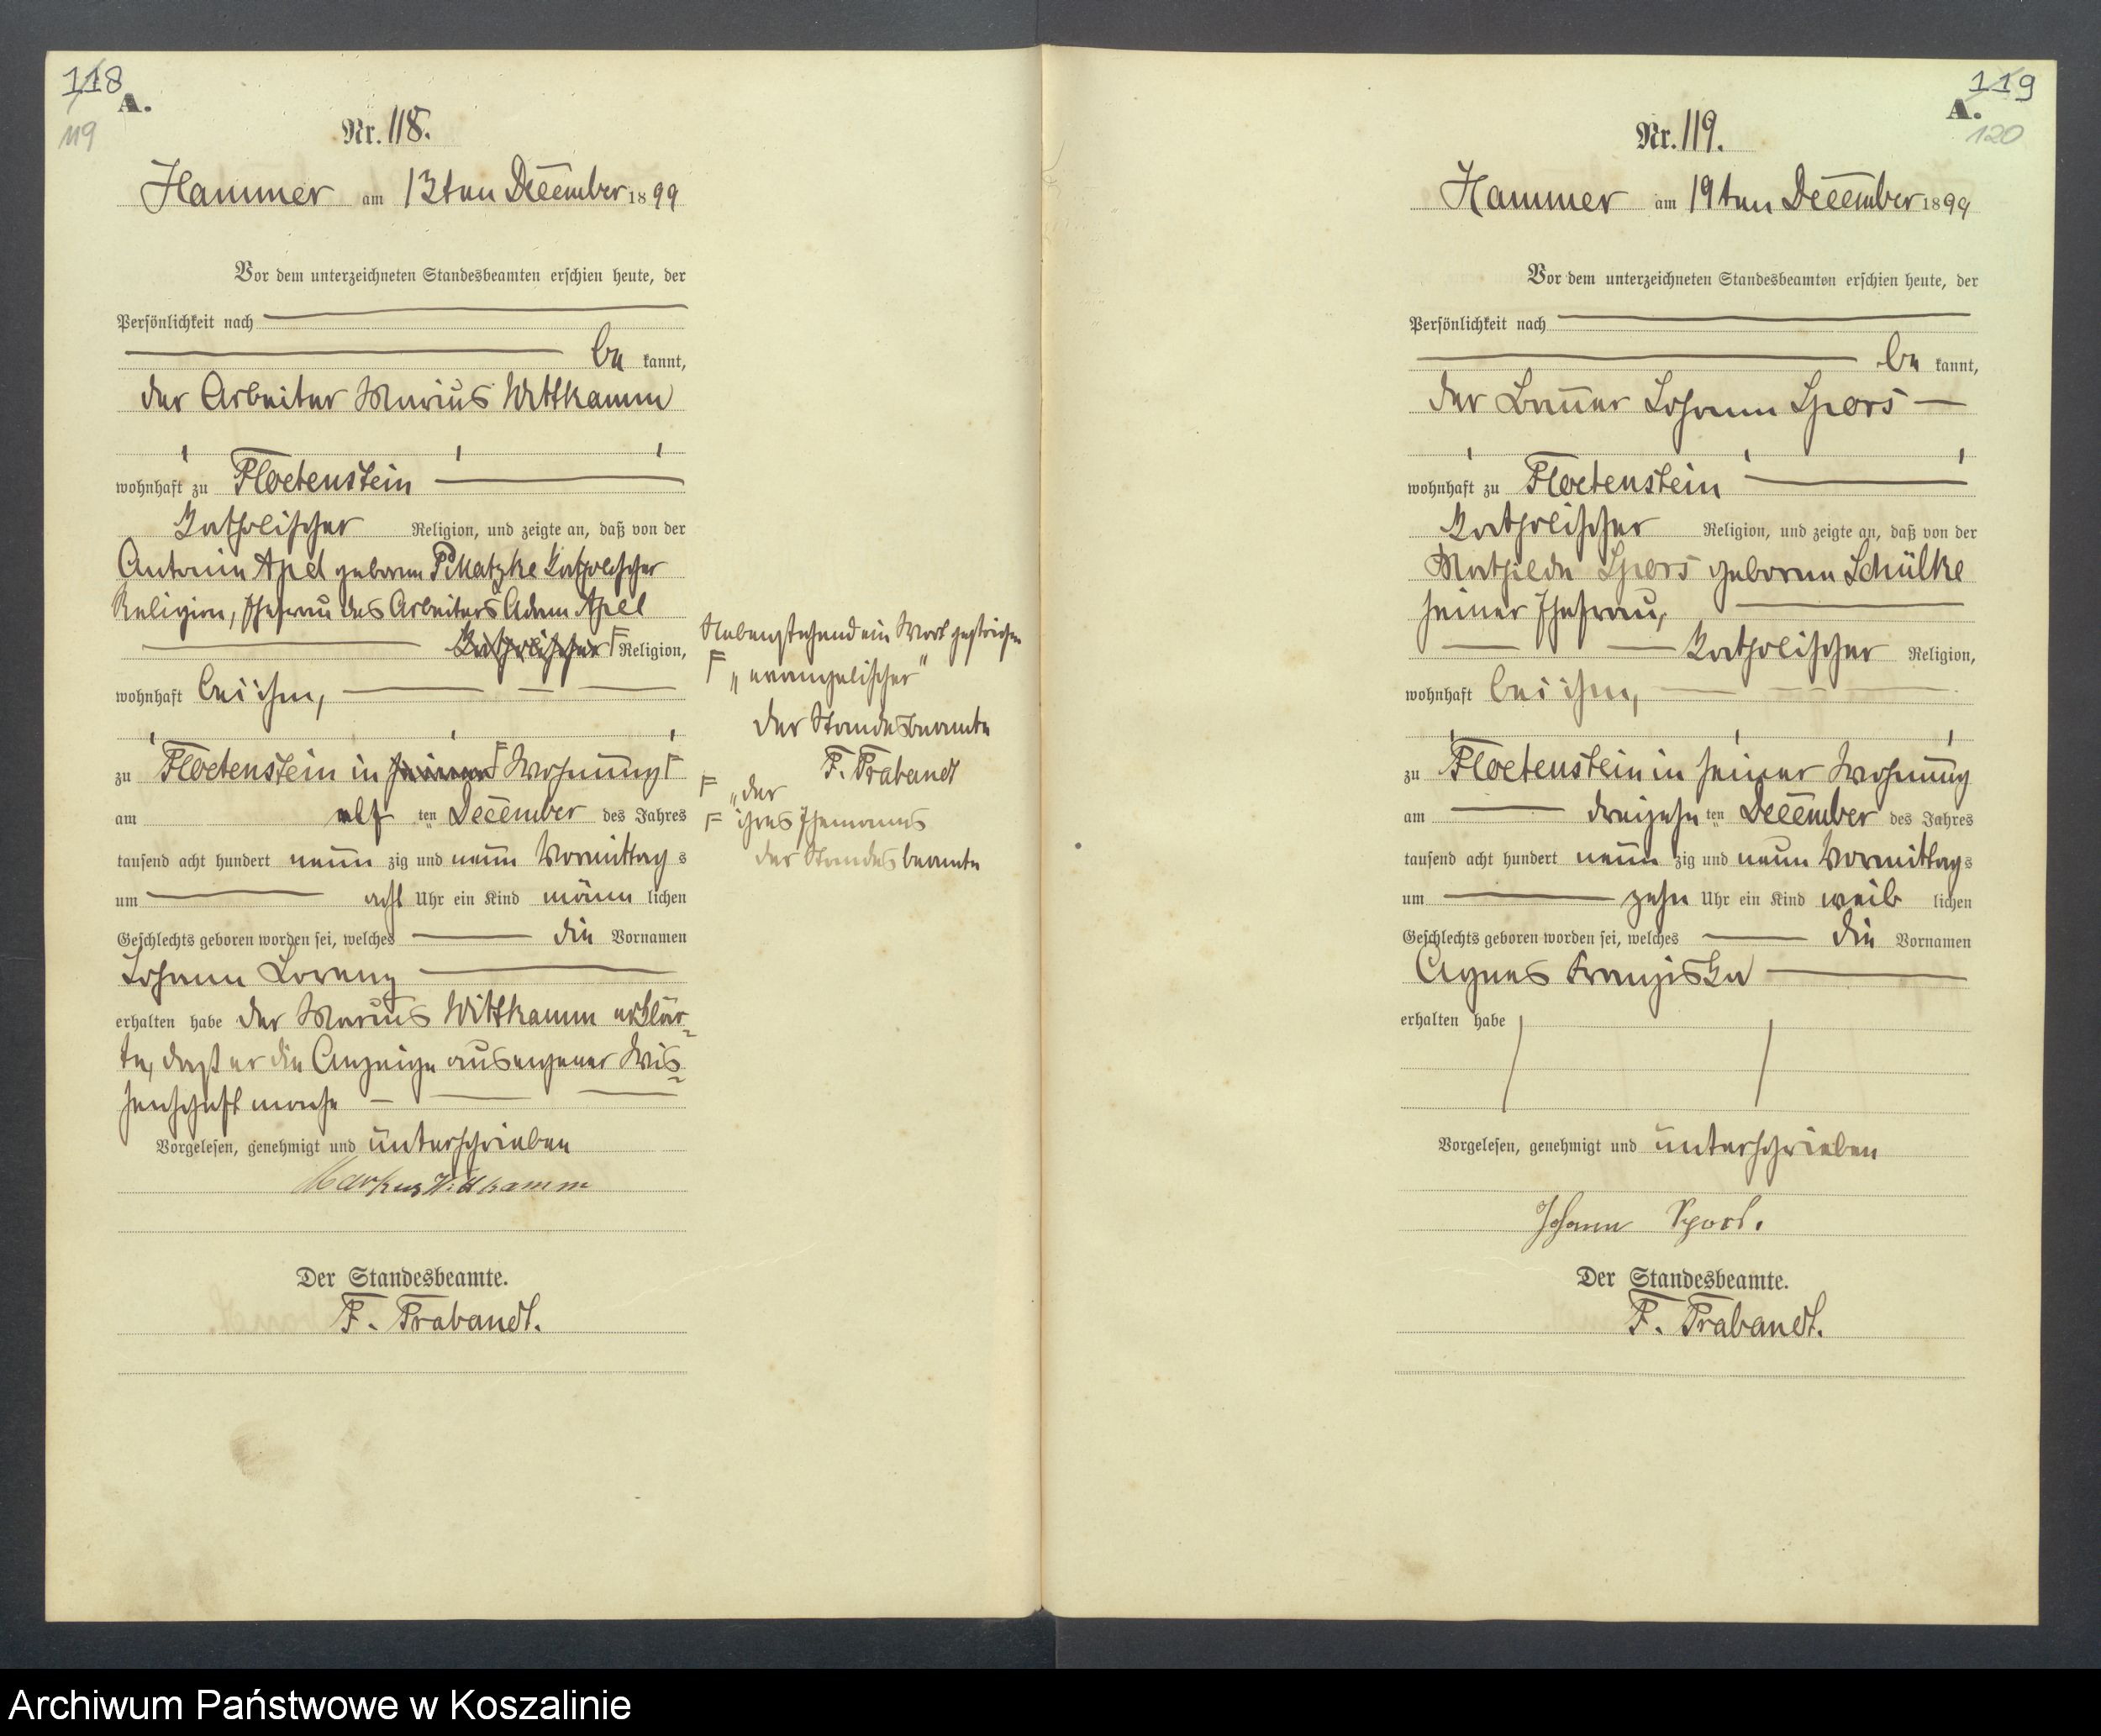 118
A.
119
Nr. 118.
Hammer am 13ten December 1899
Vor dem unterzeichneten Standesbeamten erschien heute, der
Persönlichkeit nach
be kannt,
der Arbeiter Marius Wittkamm
wohnhaft zu Floetenstein
katholischer Religion, und zeigte an, daß von der
Antonie Apel geborene Pillatzke katholischer
Religion, Ehefrau des Arbeiters Adam Apel
katholischer F Religion,
wohnhaft bei ihm,
zu Floetenstein in seiner F Wohnung F
am elf ten December des Jahres
tausend acht hundert neun zig und neun Vormittag s
um acht Uhr ein Kind männ lichen
Geschlechts geboren worden sei, welches die Vornamen
Johann Lorenz
erhalten habe der Marius Wittkamm erklär-
te, daß er die Anzeige aus eigener Wis-
senschaft mache
Vorgelesen, genehmigt und unterschrieben
Markus Wittkamm
Der Standesbeamte.
F. Trabandt.
Nebenstehend ein Wort gestrichen
F „evangelischer"
der Standesbeamte
F. Trabandt
F „der
F ihres Ehemannes
der Standesbeamte
119
A.
120
Nr. 119.
Hammer am 19ten December 1899
Vor dem unterzeichneten Standesbeamten erschien heute, der
Persönlichkeit nach
be kannt,
der Bauer Johann Spors
wohnhaft zu Floetenstein
katholischer Religion, und zeigte an, daß von der
Mathilde Spors geborene Schülke
seiner Ehefrau,
katholischer Religion,
wohnhaft bei ihm,
zu Floetenstein in seiner Wohnung
am dreizehn ten December des Jahres
tausend acht hundert neun zig und neun Vormittag s
um zehn Uhr ein Kind weib lichen
Geschlechts geboren worden sei, welches die Vornamen
Agnes Franziska
erhalten habe
Vorgelesen, genehmigt und unterschrieben
Johann Spors.
Der Standesbeamte.
F. Trabandt.
Archiwum Państwowe w Koszalinie